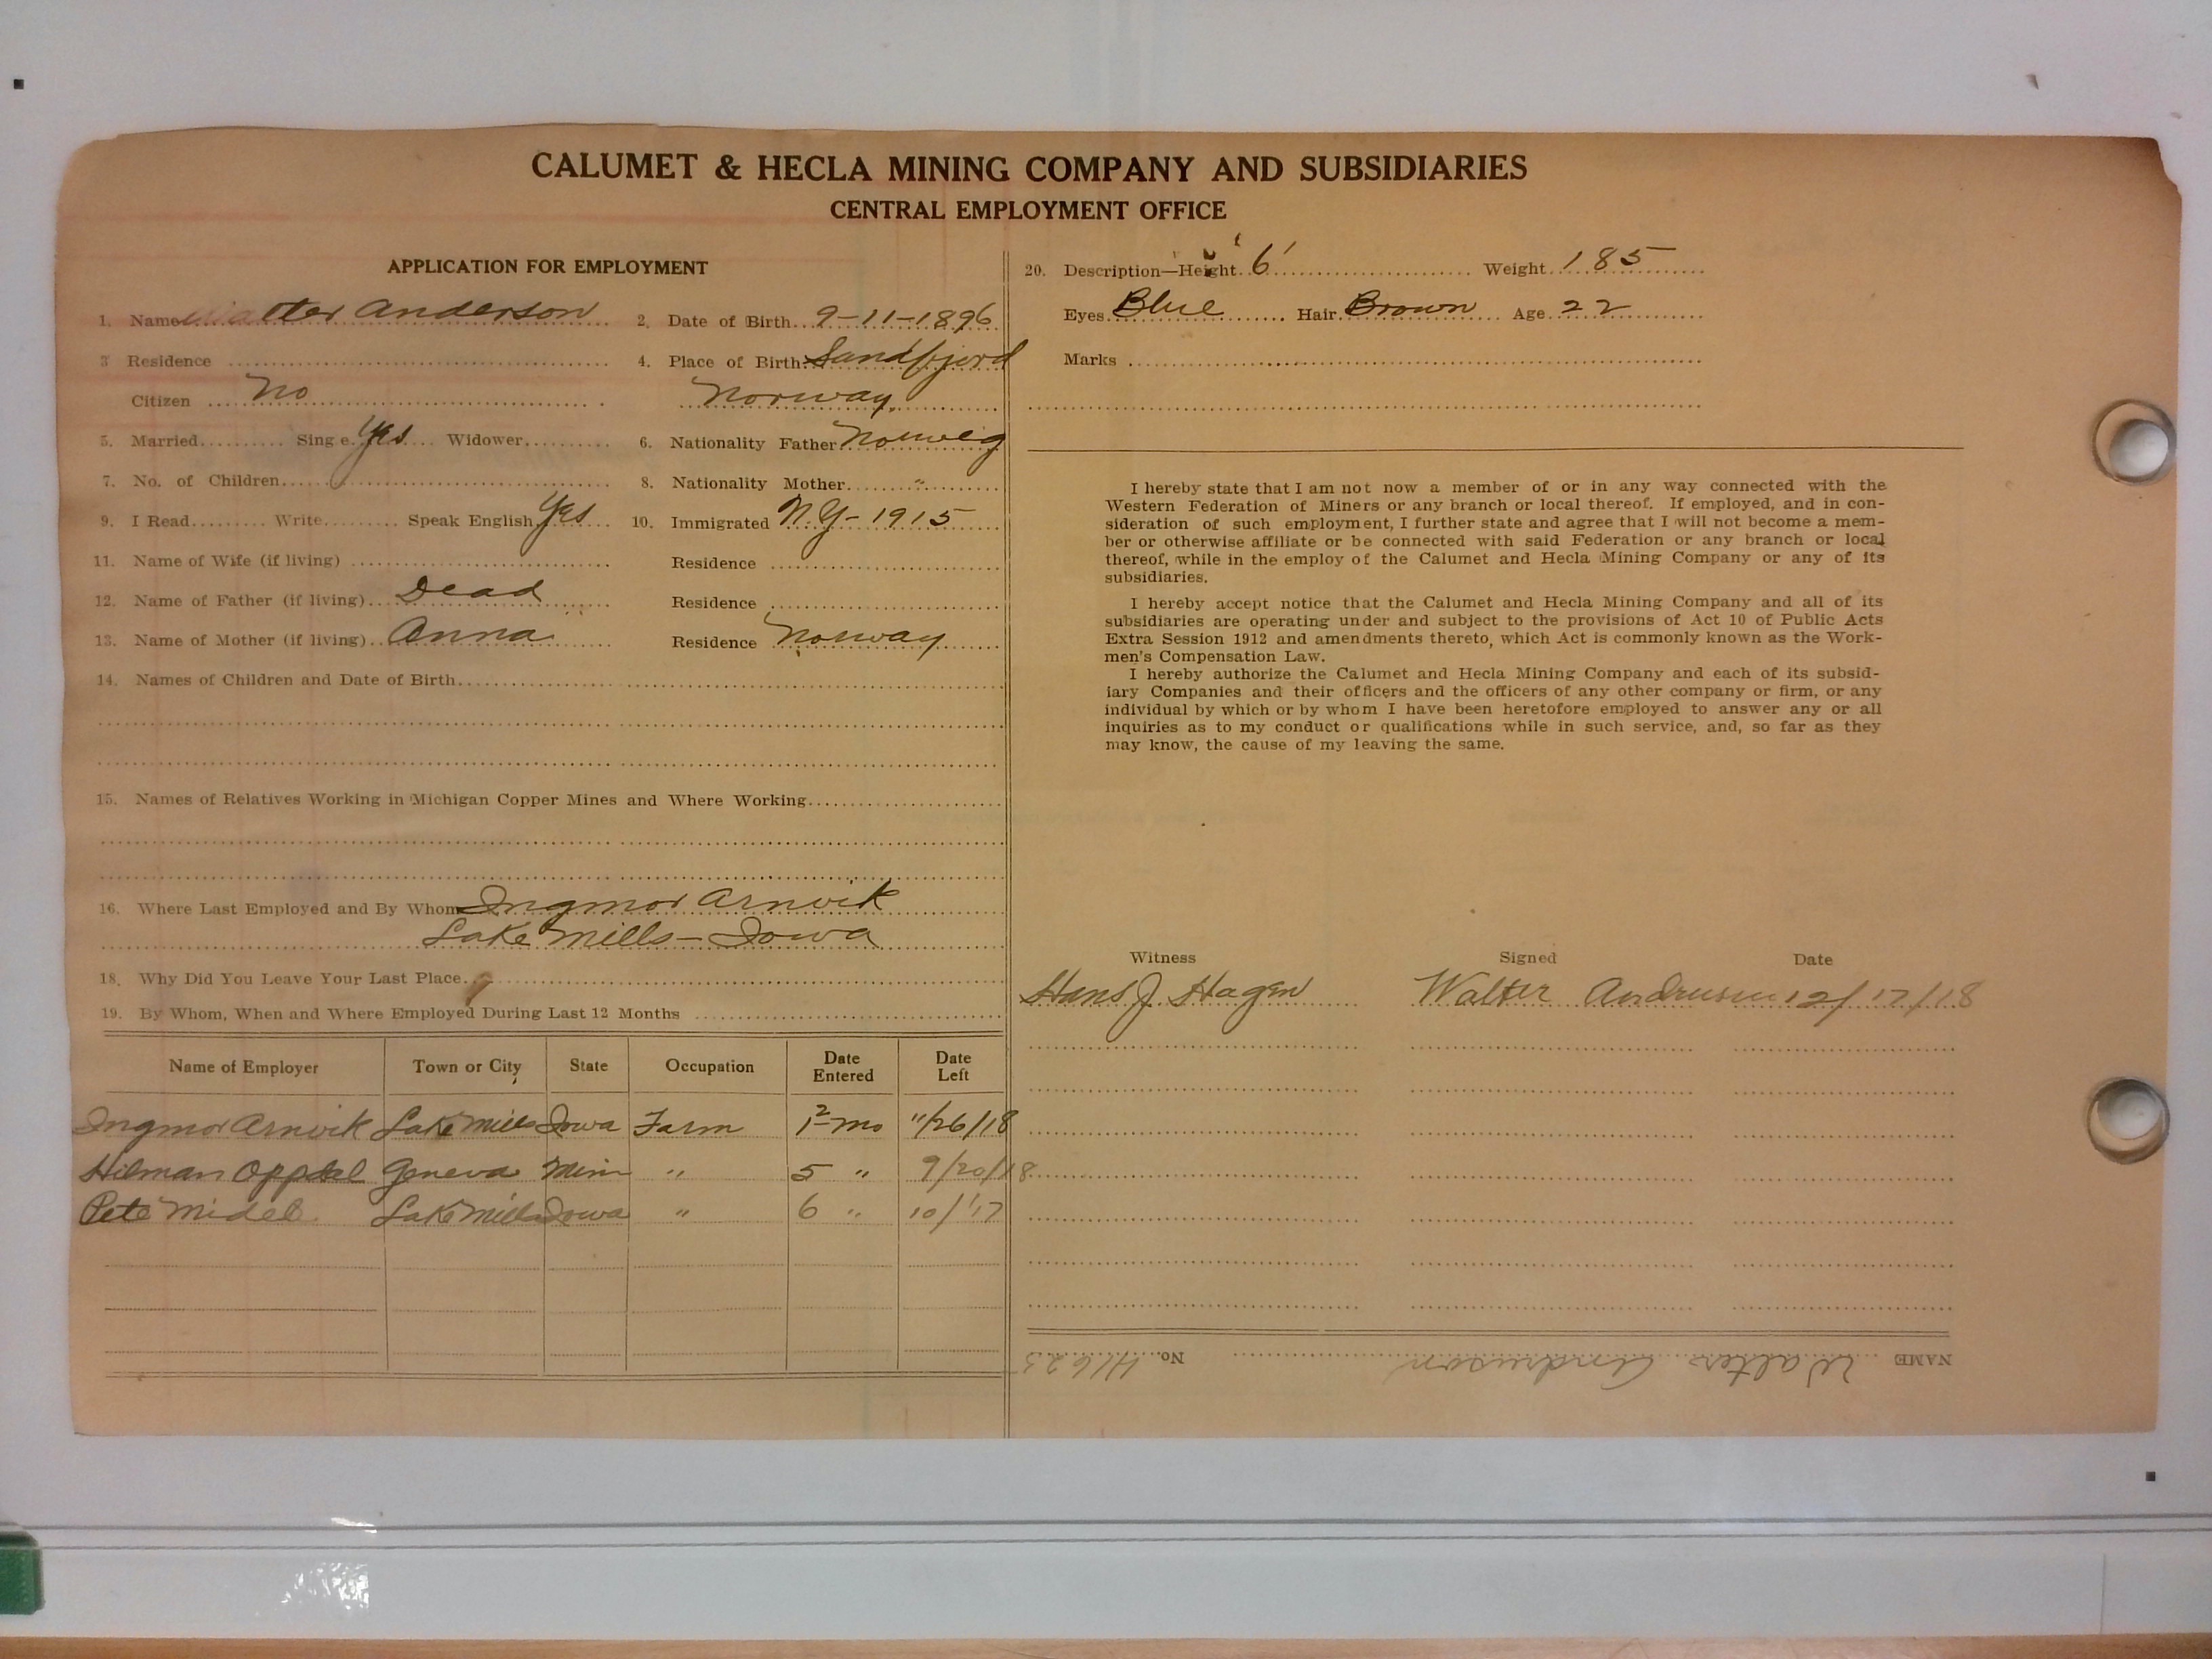 CALUMET & HECLA MINING COMPANY AND SUBSIDIARIES
CENTRAL EMPLOYMENT OFFICE
APPLICATION FOR EMPLOYMENT
1. Name Walter Anderson 2. Date of Birth 9-11-1896
3 Residence 4. Place of Birth Sandfjord
Citizen No Norway
5. Married Sing e. Yes Widower 6. Nationality Father Norweg
7. No. of Children 8. Nationality Mother "
9. I Read Write Speak English Yes 10. Immigrated N.Y- 1915
11. Name of Wife (if living) Residence
12. Name of Father (if living) Dead Residence
13. Name of Mother (if living) Anna Residence Norway
14. Names of Children and Date of Birth
15. Names of Relatives Working in Michigan Copper Mines and Where Working
16. Where Last Employed and By Whom Ingmor Arnvik
Lake Mills - Iowa
18. Why Did You Leave Your Last Place
19. By Whom, When and Where Employed During Last 12 Months
Name of Employer Town or City State Occupation Date Entered Date Left
Ingmor Arnvik Lake Mills Iowa Farm 1 2 mo 11/26/18
Hilman Oppdal Geneva Minn " 5 " 9/20/18
Pete Midel Lake Mills Iowa " 6 " 10/'17
20. Description—Height 6' Weight 185
Eyes Blue Hair Brown Age 22
Marks
I hereby state that I am not now a member of or in any way connected with the
Western Federation of Miners or any branch or local thereof. If employed, and in con-
sideration of such employment, I further state and agree that I will not become a mem-
ber or otherwise affiliate or be connected with said Federation or any branch or local
thereof, while in the employ of the Calumet and Hecla Mining Company or any of its
subsidiaries.
I hereby accept notice that the Calumet and Hecla Mining Company and all of its
subsidiaries are operating under and subject to the provisions of Act 10 of Public Acts
Extra Session 1912 and amendments thereto, which Act is commonly known as the Work-
men's Compensation Law.
I hereby authorize the Calumet and Hecla Mining Company and each of its subsid-
iary Companies and their officers and the officers of any other company or firm, or any
individual by which or by whom I have been heretofore employed to answer any or all
inquiries as to my conduct or qualifications while in such service, and, so far as they
may know, the cause of my leaving the same.
Witness Signed Date
Hans J. Hagen Walter Andrusen 12/17/18
NAME Walter Andruson No. H1623